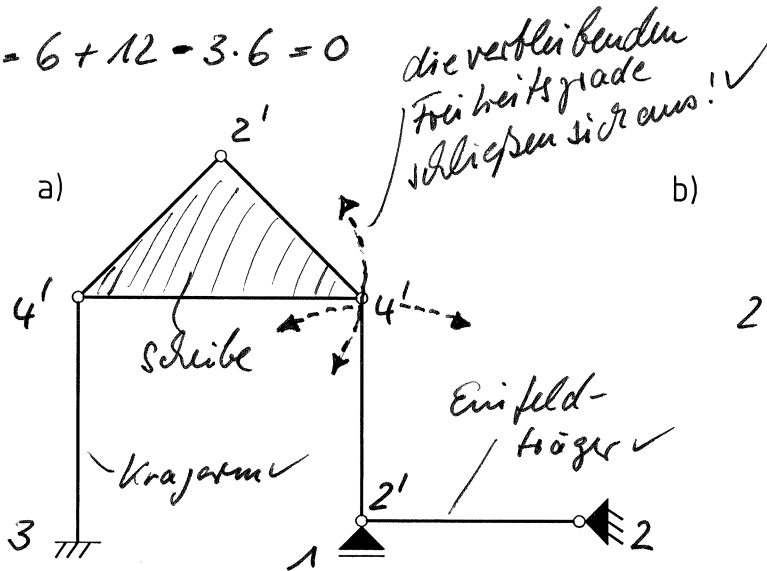 = 6 + 12 - 3·6 = 0
die verbleibenden
Freiheitsgrade
schließen sich aus! ✓
2'
a)
b)
4'
4'
2
Scheibe
Einfeld-
träger ✓
Kragarm ✓
2'
3
1
2